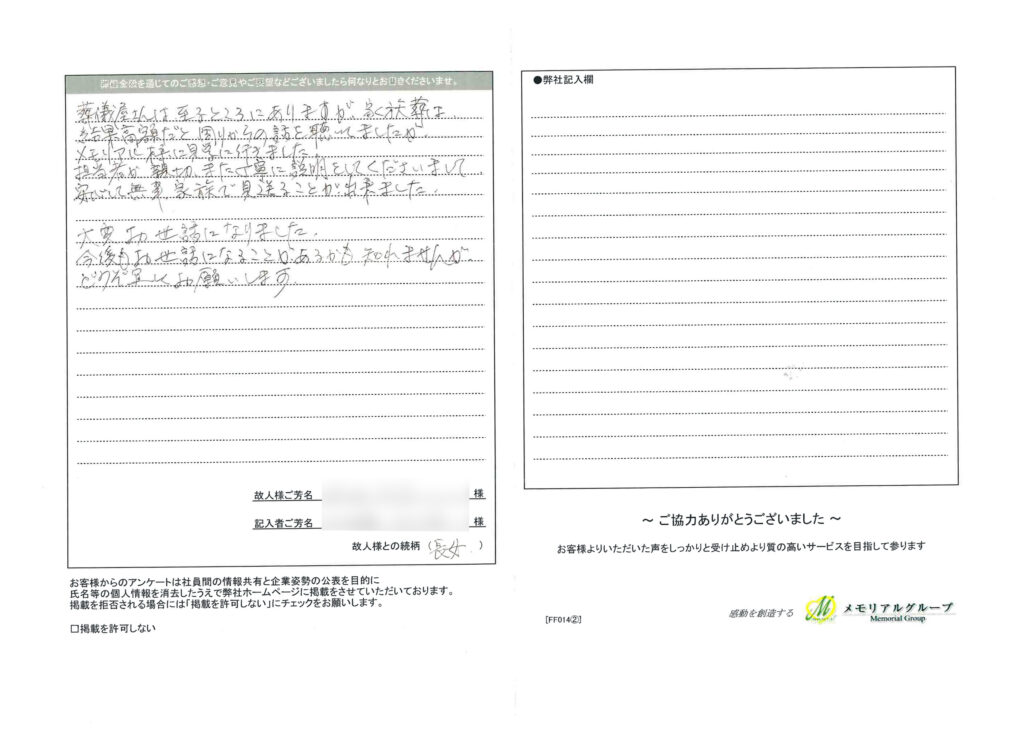 全般を通じてのご感想・ご意見やご要望などございましたら何なりとお書きくださいませ。
葬儀屋さんは至るところにありますが、家族葬は、
結果高額だと周りからの話を聴いてましたが
メモリアル様に見学に行きました
担当者が親切、また丁寧に説明をしてくださいまして
安心して無事家族で見送ることが出来ました。
大変お世話になりました。
今後もお世話になることがあるかも知れませんが、
どうぞ宜しくお願いします
故人様ご芳名 様
記入者ご芳名 様
故人様との続柄 （長女 ）
お客様からのアンケートは社員間の情報共有と企業姿勢の公表を目的に
氏名等の個人情報を消去したうえで弊社ホームページに掲載をさせていただいております。
掲載を拒否される場合には「掲載を許可しない」にチェックをお願いします。
□掲載を許可しない
●弊社記入欄
～ ご協力ありがとうございました ～
お客様よりいただいた声をしっかりと受け止めより質の高いサービスを目指して参ります
[FF014②]
感動を創造する
メモリアルグループ
Memorial Group